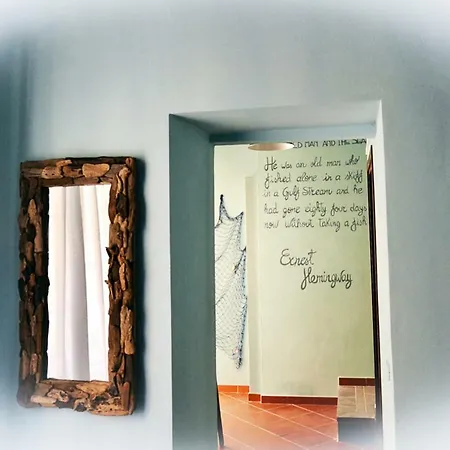 OLD MAN AND THE SEA
He was an old man who
fished alone in a skiff
in a Gulf Stream and he
had gone eighty four days
now without taking a fish
Ernest
Hemingway